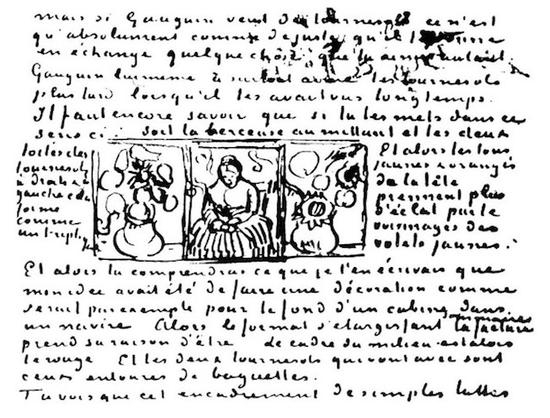 mais si Gauguin veut des tournesols ce n'est
qu'absolument comme de juste qu'il te donne
en échange quelque chose que tu aimes autant.
Gauguin lui même a surtout aimé les tournesols
plus tard lorsqu'il les avait vus longtemps.
Il faut encore savoir que si tu les mets dans ce
sens ci: soit la berceuse au millieu et les deux
toiles des
tournesols
à droite &
gauche cela
forme
comme
un triptyque
Et alors les tons
jaunes & orangés
de la tête
prennent plus
d'éclat par le
voisinages des
volets jaunes.
Et alors tu comprendras ce que je t'en écrivais que
mon idée avait été de faire une décoration comme
serait par exemple pour le fond d'un cabine dans
un navire Alors le format s'élargissant la facture
sommaire
prend sa raison d'être le cadre du milieu est alors
le rouge Et les deux tournesols qui vont avec sont
ceux entourés de baguettes.
Tu vois que cet encadrement de simples lattes